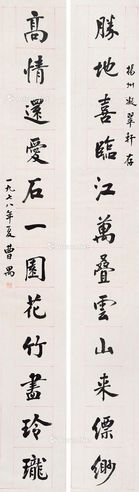 揚州凝翠軒存
勝地喜臨江萬叠雲山来縹緲
高情還愛石一園花竹盡玲瓏
一九七八年夏曹禺